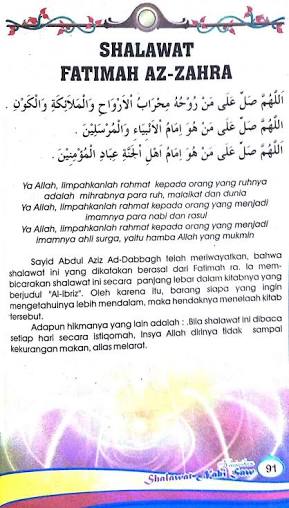 SHALAWAT
FATIMAH AZ-ZAHRA
اَللّٰهُمَّ صَلِّ عَلَى مَنْ رُوْحُهُ مِحْرَابُ الْأَرْوَاحِ وَالْمَلَائِكَةِ وَالْكَوْنِ .
اَللّٰهُمَّ صَلِّ عَلَى مَنْ هُوَ إِمَامُ الْأَنْبِيَاءِ وَالْمُرْسَلِيْنَ .
اَللّٰهُمَّ صَلِّ عَلَى مَنْ هُوَ إِمَامُ أَهْلِ الْجَنَّةِ عِبَادِ اللهِ الْمُؤْمِنِيْنَ .
Ya Allah, limpahkanlah rahmat kepada orang yang ruhnya
adalah mihrabnya para ruh, malaikat dan dunia
Ya Allah, limpahkanlah rahmat kepada orang yang menjadi
imamnya para nabi dan rasul
Ya Allah, limpahkanlah rahmat kepada orang yang menjadi
imamnya ahli surga, yaitu hamba Allah yang mukmin
Sayid Abdul Aziz Ad-Dabbagh telah meriwayatkan, bahwa
shalawat ini yang dikatakan berasal dari Fatimah ra. Ia mem-
bicarakan shalawat ini secara panjang lebar dalam kitabnya yang
berjudul "Al-Ibriz". Oleh karena itu, barang siapa yang ingin
mengetahuinya lebih mendalam, maka hendaknya menelaah kitab
tersebut.
Adapun hikmanya yang lain adalah : .Bila shalawat ini dibaca
setiap hari secara istiqomah, Insya Allah dirinya tidak sampai
kekurangan makan, alias melarat.
Shalawat Nabi Saw
91